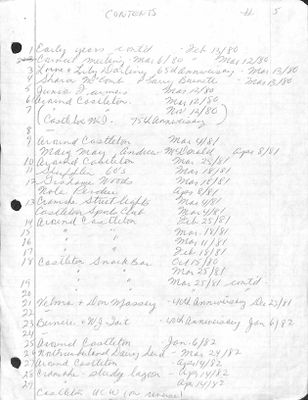 CONTENTS # 5
1 Early years cont'd - Feb 13/80
2 meeting - Mar 6/80 " Mar 12/80
3 Lorne + Lily Darling 65th Anniversary - Mar 13/80
Sharon McComb + Larry Burnette - Mar 13/80
5 Junior Farmers Mar 12/80
6 Around Castleton Mar 12/80
7 ( " " Nov 12/80 )
(Castleton W.I. 75th Anniversary)
8 -
9 Around Castleton Mar 4/81
Mary May Andrew McDonald Apr 8/81
10 Around Castleton Mar 25/81
11 60's Mar 18/81
12 Grahame Woods Mar 18/81
Nole Apr 8/81
13 Cramahe Street Lights Mar 4/81
Castleton Sports Club Mar 4/81
14 Around Castleton Feb 25/81
15 " " Mar 18/81
16 " " Mar 11/81
17 " " Feb 18/81
18 Castleton Snack Bar Oct 15/80
" " Mar 25/81
19 " " Mar 25/81 cont'd
20 -
21 Velma + Don Massey - 40th Anniversary Dec 23/81
22 -
23 Bernice + W.J. - 40th Anniversary Jan 6/82
24
25 Around Castleton Jan 6/82
26 Northumberland Dairy Herd - Mar 24/82
27 Around Castleton Apr 14/82
28 Cramahe - study lagoon - Apr 14/82
29 " " Apr 14/82
Castleton UCW (on reverse)